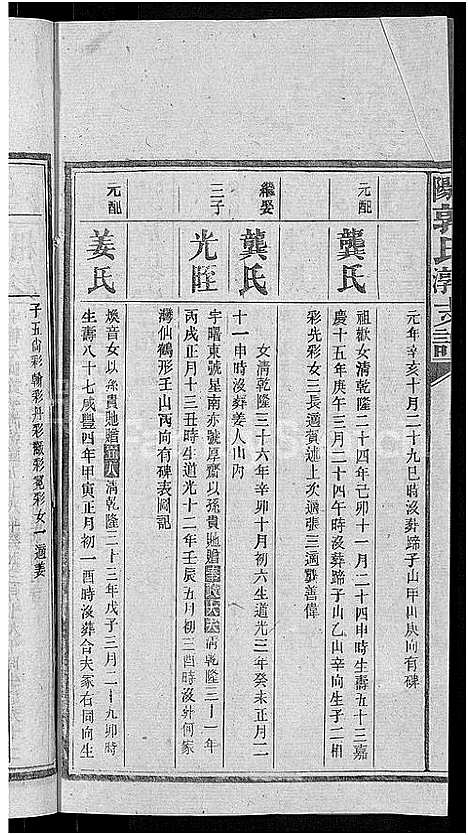 陽郭氏淳大譜
元年辛亥十月二十九巳時沒葬蹄子山甲山庚向有碑
元配
龔氏
祖歡女清乾隆二十四年己卯十一月二十四申時生壽五十三嘉
慶十五年庚午三月二十四午時沒葬蹄子山乙山辛向生子二相
彩先彩女三長適賀述上次適張三適龔善偉
繼娶
龔氏
女清乾隆三十六年辛卯十月初六生道光三年癸未正月二
十一申時沒葬姜人山內
三子
光旺
宇曙東號星南亦號厚齋以孫貴貤贈奉政大夫清乾隆三十一年
丙戌正月十三丑時生道光十二年壬辰五月初三酉時沒葬何家
灣仙鶴形壬山丙向有碑表圖記
元配
姜氏
煥音女以孫貴貤贈宜人清乾隆三十三年戊子三月二十九卯時
生壽八十七咸豐四年甲寅正月初一酉時沒葬合夫冢右同向生
子五尙彩翰彩丹彩黻彩寬彩女一適姜